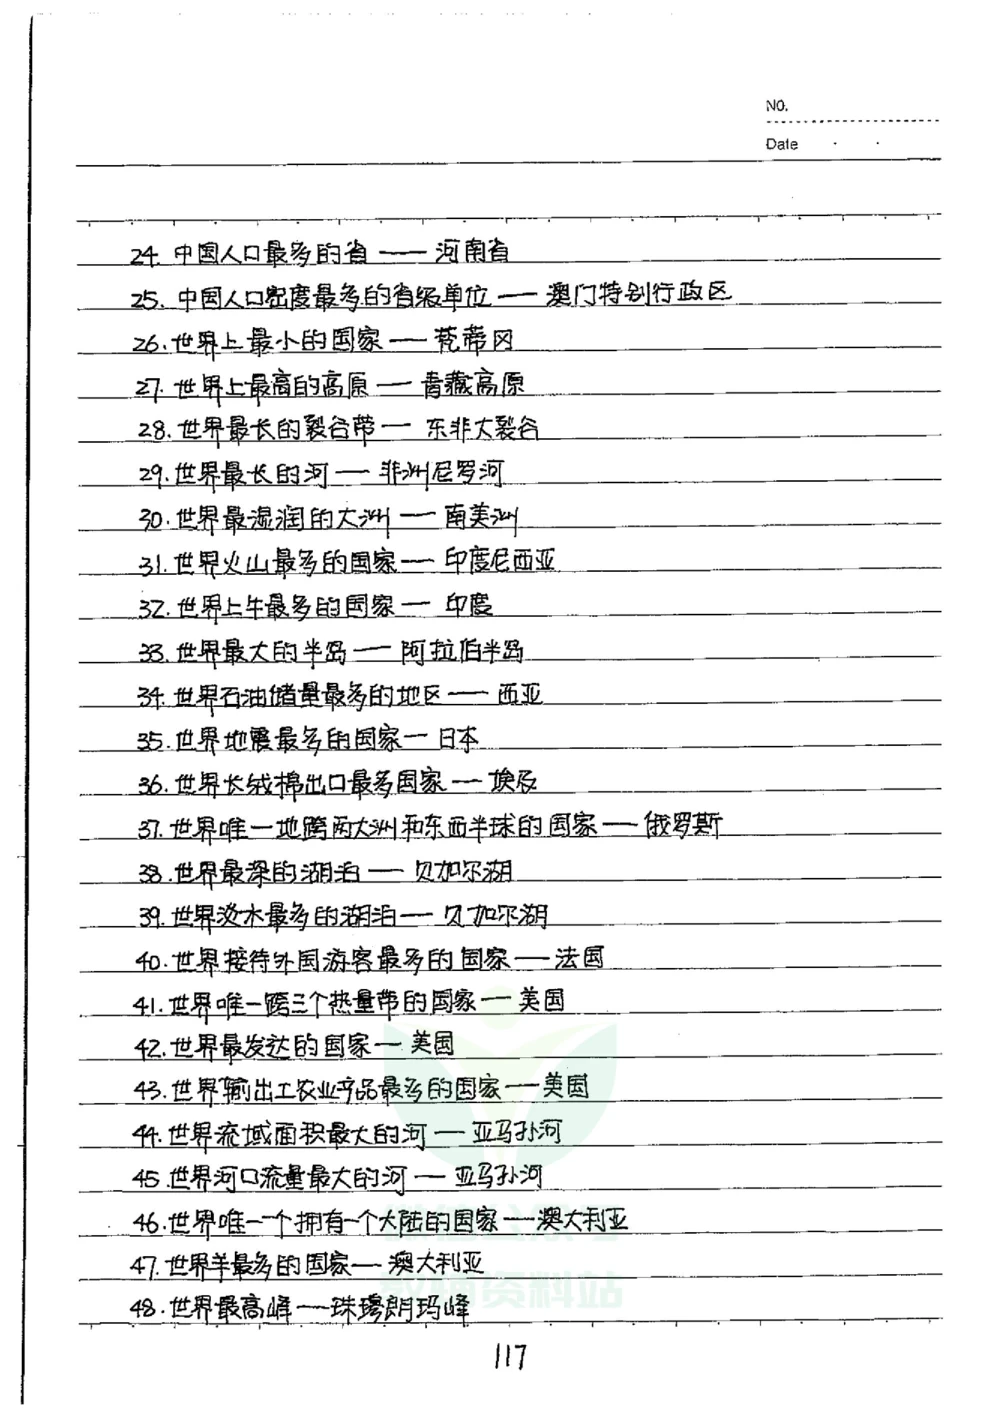 NO.
Date
24. 中国人口最多的省 —— 河南省
25. 中国人口密度最多的省级单位 —— 澳门特别行政区
26. 世界上最小的国家 —— 梵蒂冈
27. 世界上最高的高原 —— 青藏高原
28. 世界最长的裂谷带 — 东非大裂谷
29. 世界最长的河 —— 非洲尼罗河
30. 世界最湿润的大洲 —— 南美洲
31. 世界火山最多的国家 —— 印度尼西亚
32. 世界上牛最多的国家 — 印度
33. 世界最大的半岛 —— 阿拉伯半岛
34. 世界石油储量最多的地区 —— 西亚
35. 世界地震最多的国家 — 日本
36. 世界长绒棉出口最多国家 —— 埃及
37. 世界唯一地跨两大洲和东西半球的国家 —— 俄罗斯
38. 世界最深的湖泊 —— 贝加尔湖
39. 世界淡水最多的湖泊 —— 贝加尔湖
40. 世界接待外国游客最多的国家 —— 法国
41. 世界唯一跨三个热量带的国家 — 美国
42. 世界最发达的国家 — 美国
43. 世界输出工农业产品最多的国家 —— 美国
44. 世界流域面积最大的河 —— 亚马孙河
45. 世界河口流量最大的河 —— 亚马孙河
46. 世界唯一一个拥有一个大陆的国家 —— 澳大利亚
47. 世界羊最多的国家 — 澳大利亚
48. 世界最高峰 —— 珠穆朗玛峰
117